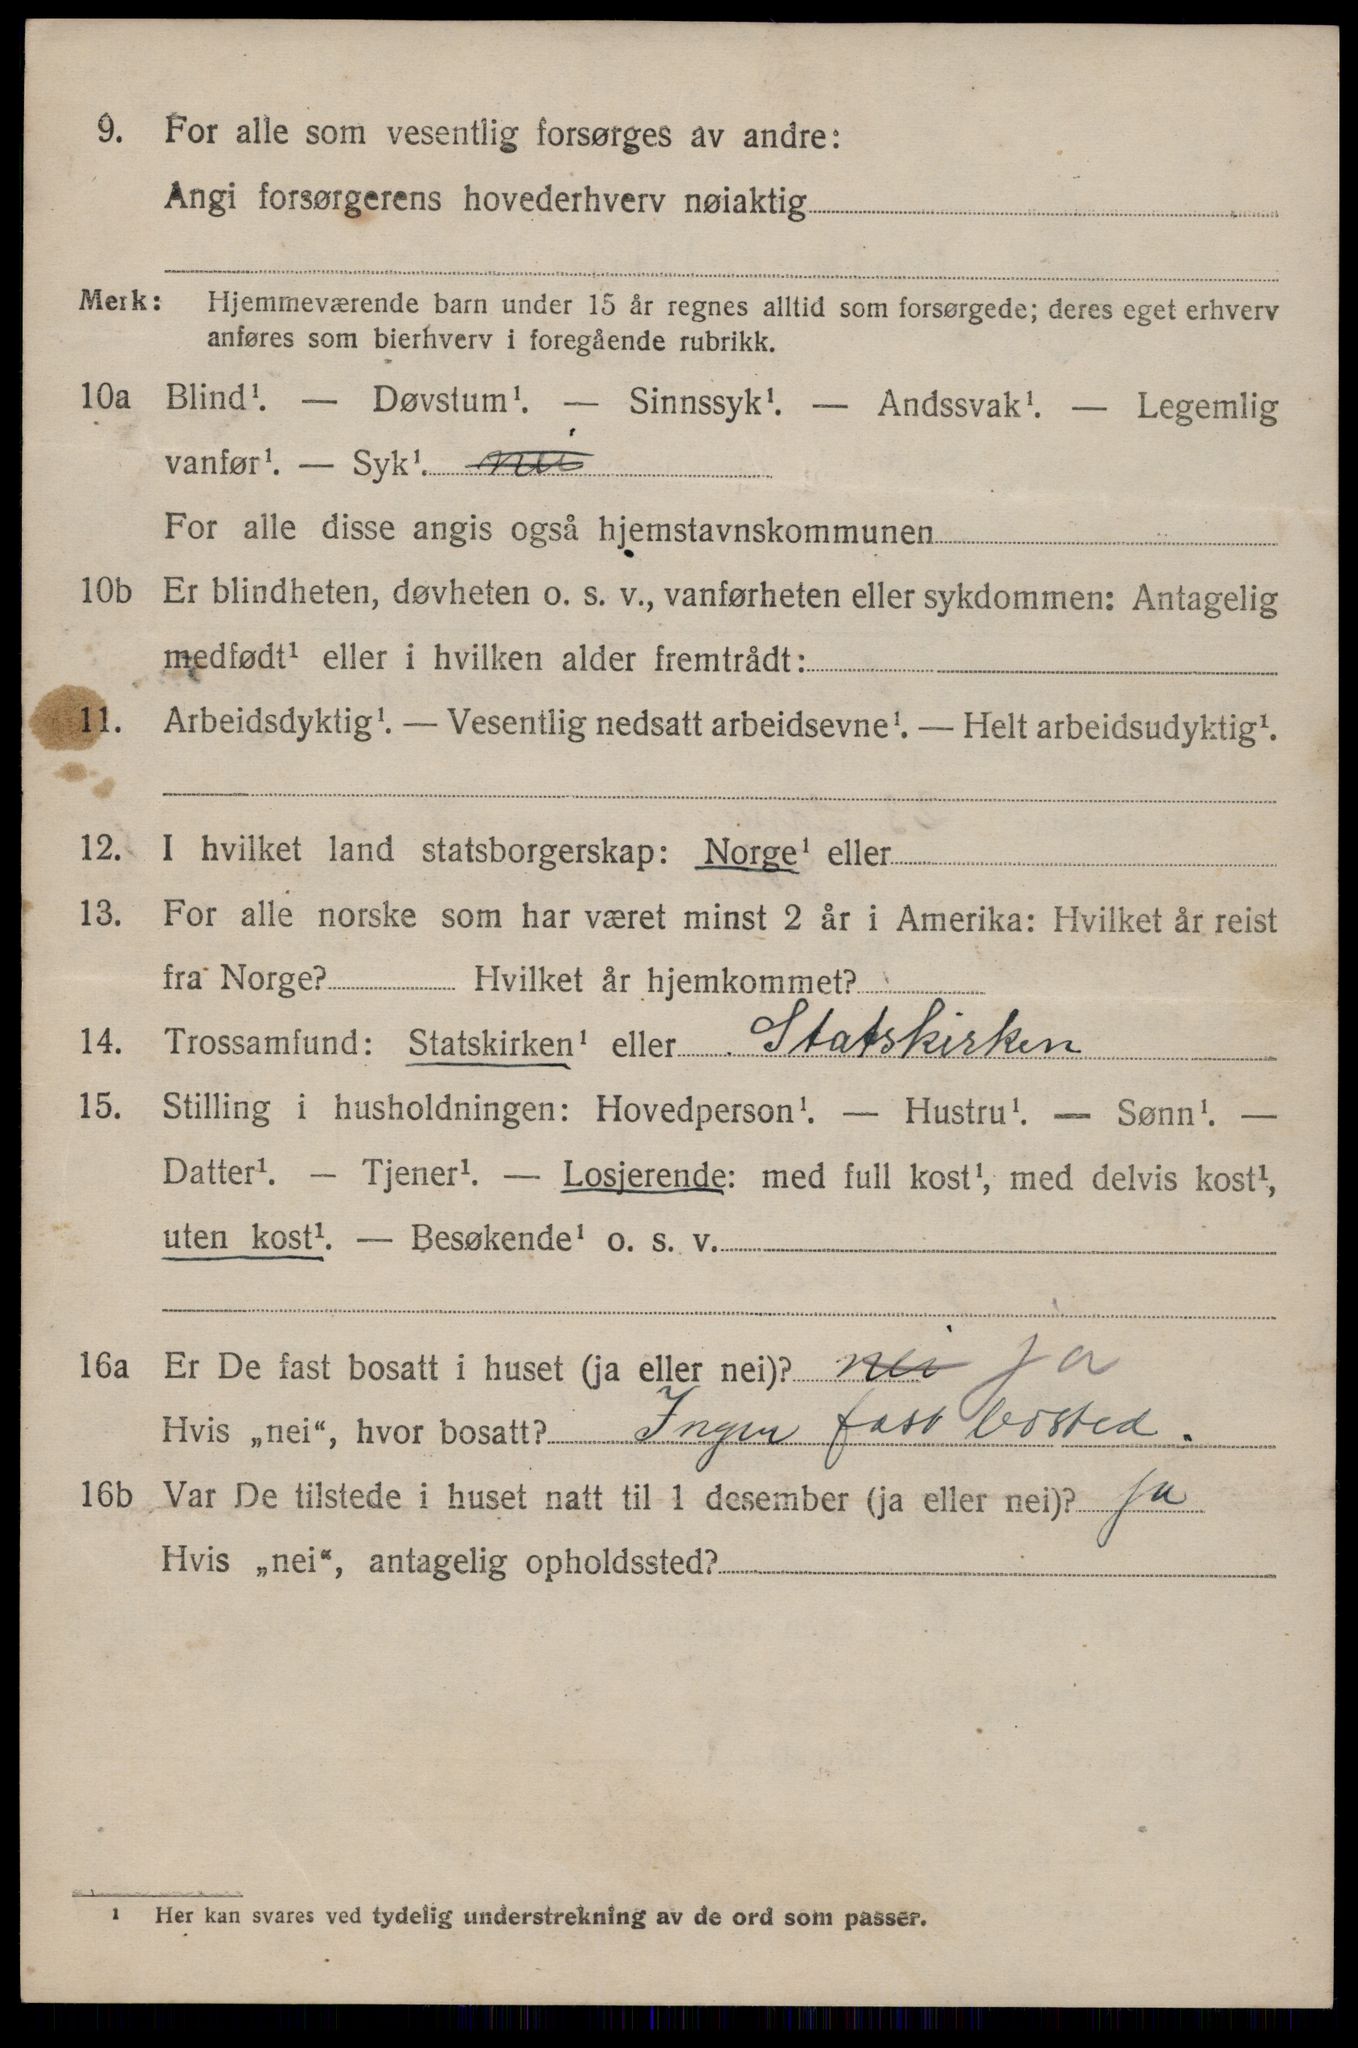 9. For alle som vesentlig forsørges av andre:
Angi forsørgerens hovederhverv nøiaktig
Merk: Hjemmeværende barn under 15 år regnes alltid som forsørgede; deres eget erhverv
anføres som bierhverv i foregående rubrikk.
10a Blind¹. — Døvstum¹. — Sinnssyk¹. — Andssvak¹. — Legemlig
vanfør¹. — Syk¹. nei
For alle disse angis også hjemstavnskommunen
10b Er blindheten, døvheten o. s. v., vanførheten eller sykdommen: Antagelig
medfødt¹ eller i hvilken alder fremtrådt:
11. Arbeidsdyktig¹. — Vesentlig nedsatt arbeidsevne¹. — Helt arbeidsudyktig¹.
12. I hvilket land statsborgerskap: Norge¹ eller
13. For alle norske som har været minst 2 år i Amerika: Hvilket år reist
fra Norge? Hvilket år hjemkommet?
14. Trossamfund: Statskirken¹ eller Statskirken
15. Stilling i husholdningen: Hovedperson¹. — Hustru¹. — Sønn¹. —
Datter¹. — Tjener¹. — Losjerende: med full kost¹, med delvis kost¹,
uten kost¹. — Besøkende¹ o. s. v.
16a Er De fast bosatt i huset (ja eller nei)? nei ja
Hvis „nei“, hvor bosatt? Ingen fast bosted.
16b Var De tilstede i huset natt til 1 desember (ja eller nei)? ja
Hvis „nei“, antagelig opholdssted?
¹ Her kan svares ved tydelig understrekning av de ord som passer.